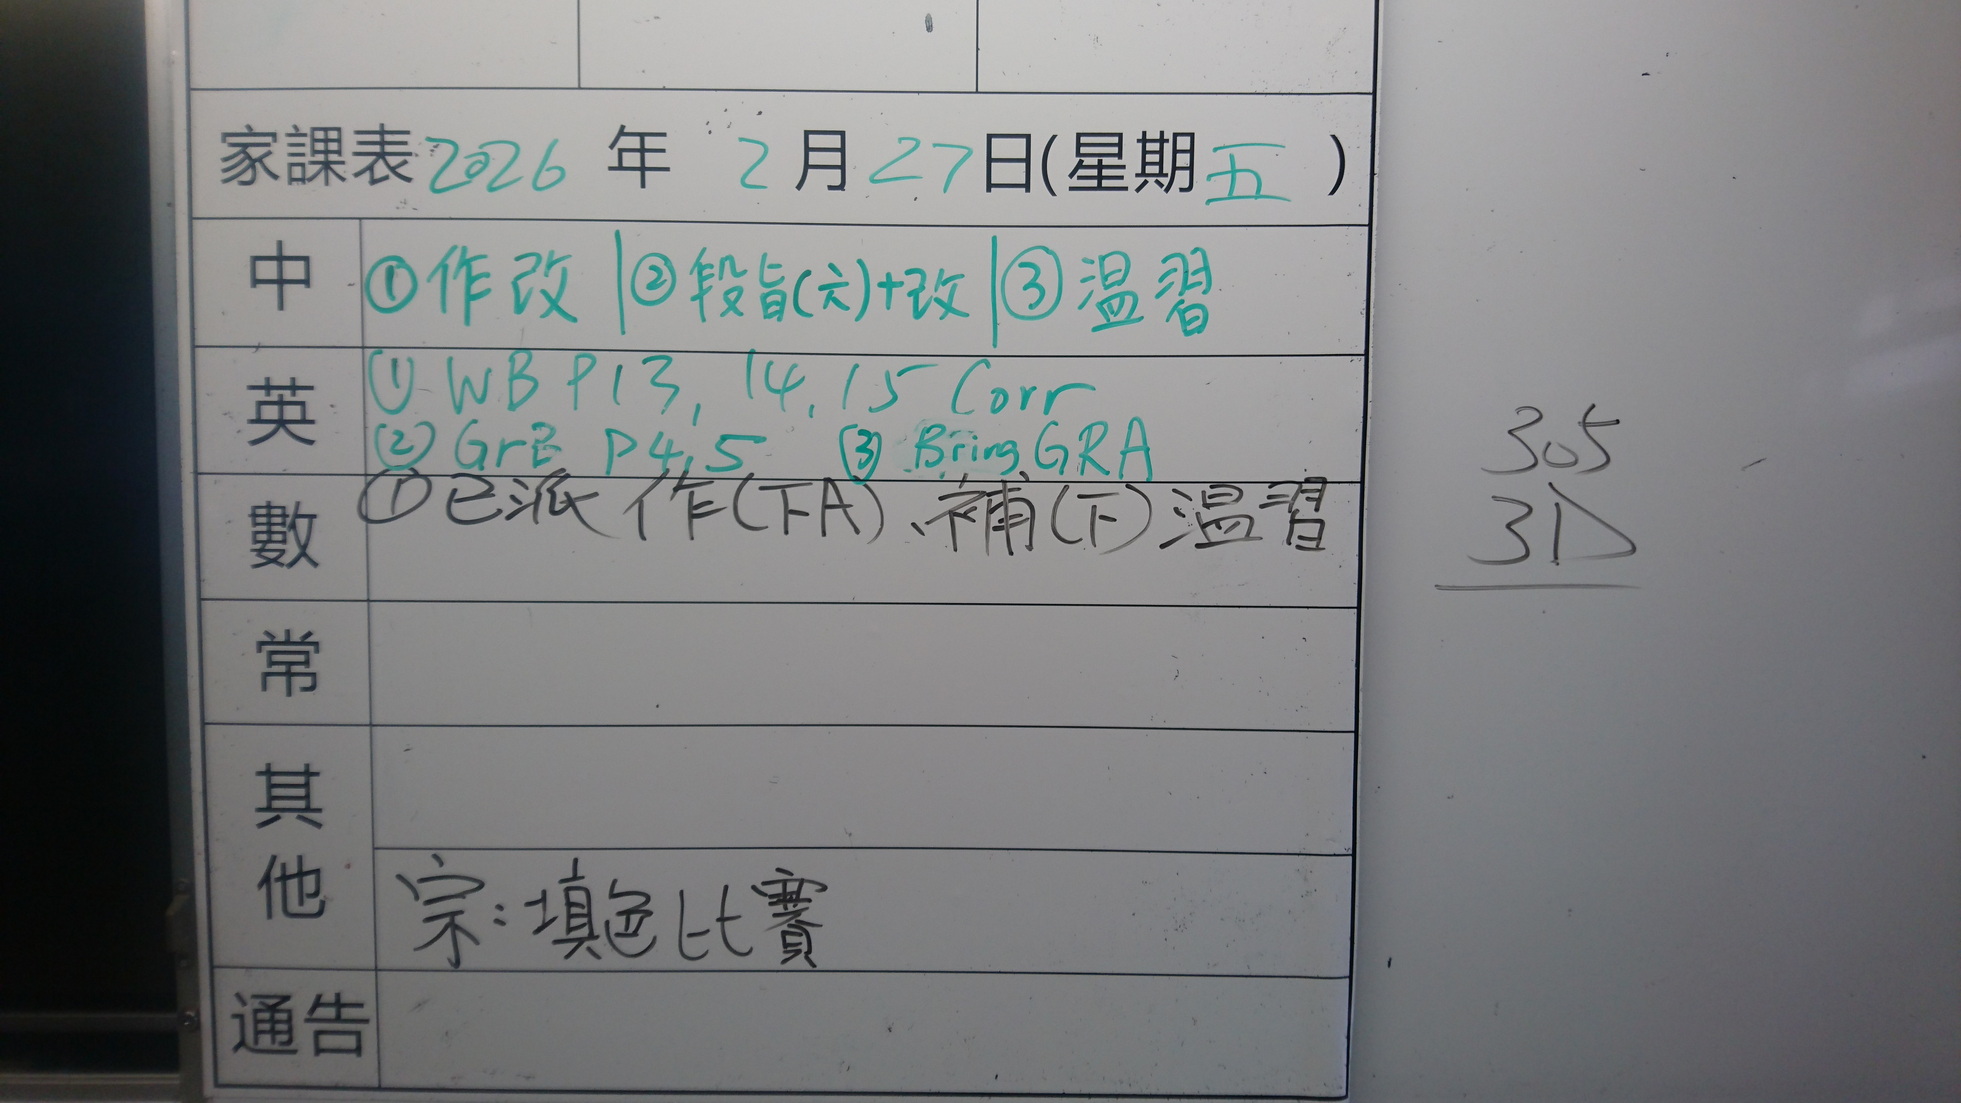 家課表2026年2月27日(星期五)
中 ①作改|②段旨(六)+改|③温習
英 ① WB P13, 14, 15 Corr
② GrE P4,5 ③ Bring GRA
數 ①已派作(下A)、補(下)温習
常
其他
宗:填色比賽
通告
305
3D